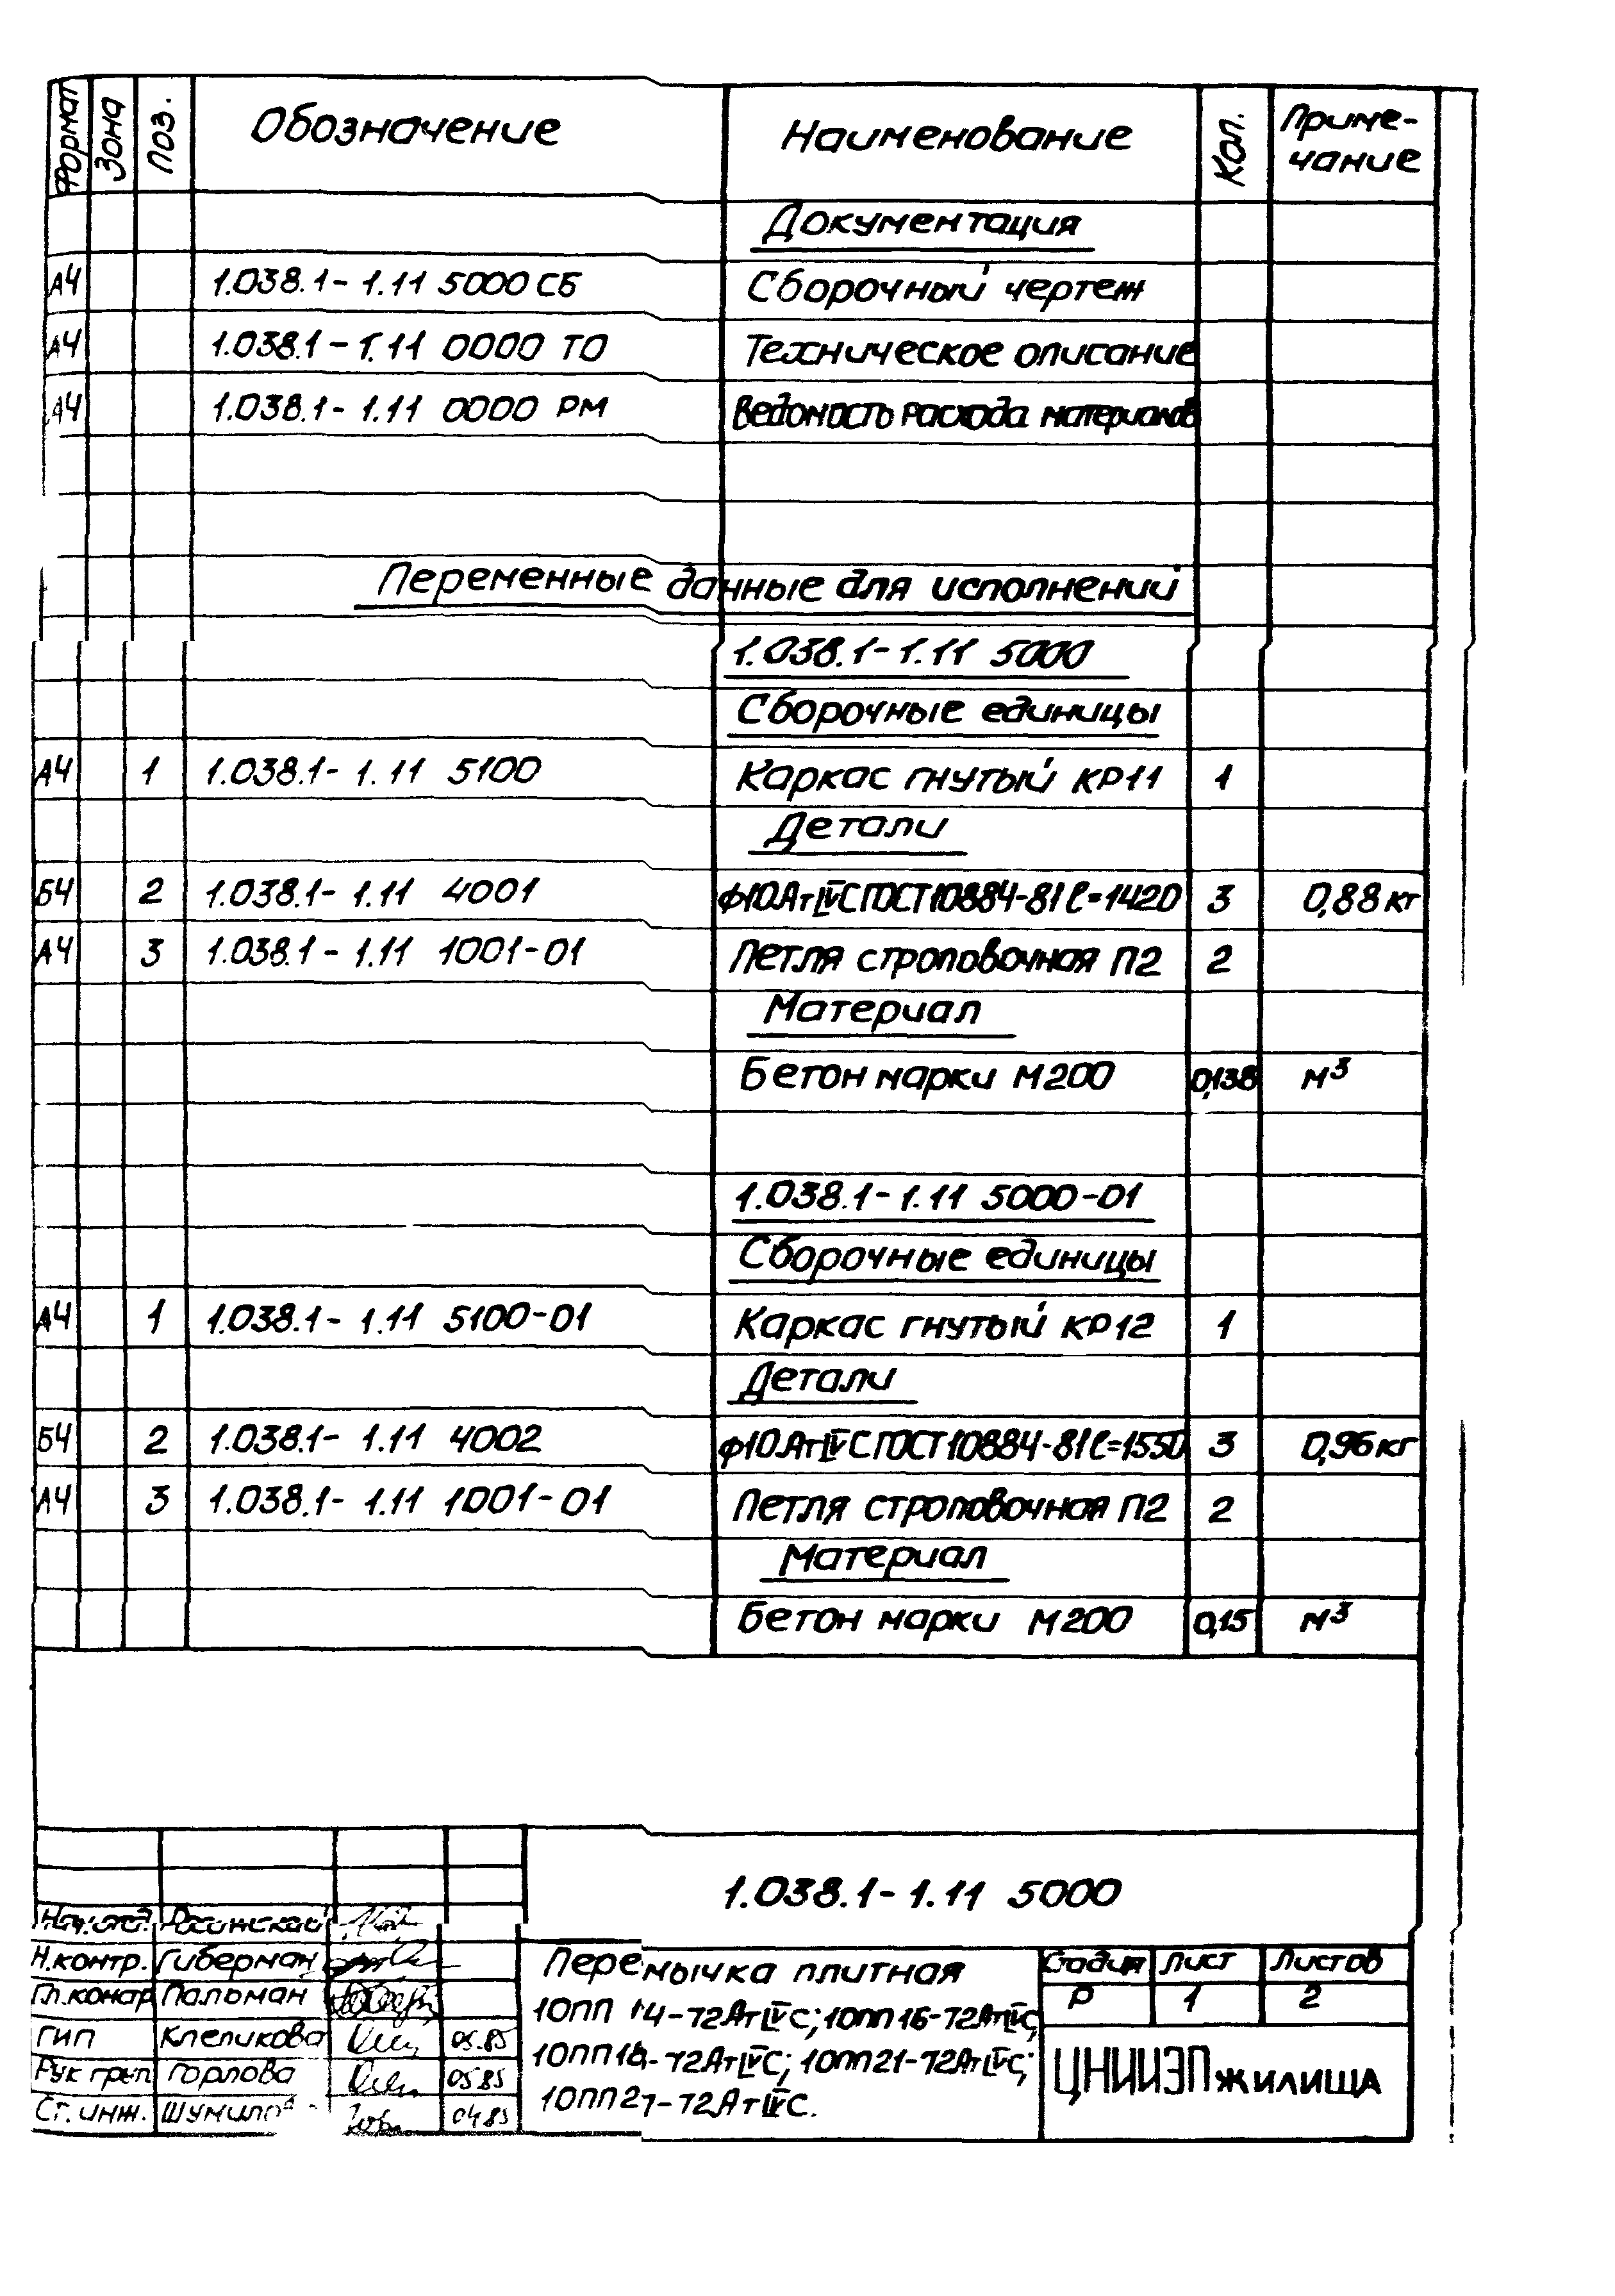 Формат Зона Поз. Обозначение Наименование Кол. Приме-
чание
Документация
А4 1.038.1-1.11 5000 СБ Сборочный чертеж
А4 1.038.1-1.11 0000 ТО Техническое описание
А4 1.038.1-1.11 0000 РМ Ведомость расхода материалов
Переменные данные для исполнений
1.038.1-1.11 5000
Сборочные единицы
А4 1 1.038.1-1.11 5100 Каркас гнутый КР11 1
Детали
Б4 2 1.038.1-1.11 4001 ф10АтIVС ГОСТ10884-81 ℓ=1420 3 0,88 кг
А4 3 1.038.1-1.11 1001-01 Петля строповочная П2 2
Материал
Бетон марки М200 0,138 м³
1.038.1-1.11 5000-01
Сборочные единицы
А4 1 1.038.1-1.11 5100-01 Каркас гнутый КР12 1
Детали
Б4 2 1.038.1-1.11 4002 ф10АтIVС ГОСТ10884-81 ℓ=1550 3 0,96 кг
А4 3 1.038.1-1.11 1001-01 Петля строповочная П2 2
Материал
Бетон марки М200 0,15 м³
1.038.1-1.11 5000
Нач.отд.
Н.контр. Гиберман
Гл.констр Пальман
ГИП Клепикова 05.85
Рук груп. Горлова 05.85
Ст. инж. 04.85
Перемычка плитная
10ПП 14-72АтIVС; 10ПП16-72АтIVС;
10ПП18-72АтIVС; 10ПП21-72АтIVС;
10ПП27-72АтIVС.
Стадия Лист Листов
Р 1 2
ЦНИИЭП жилища